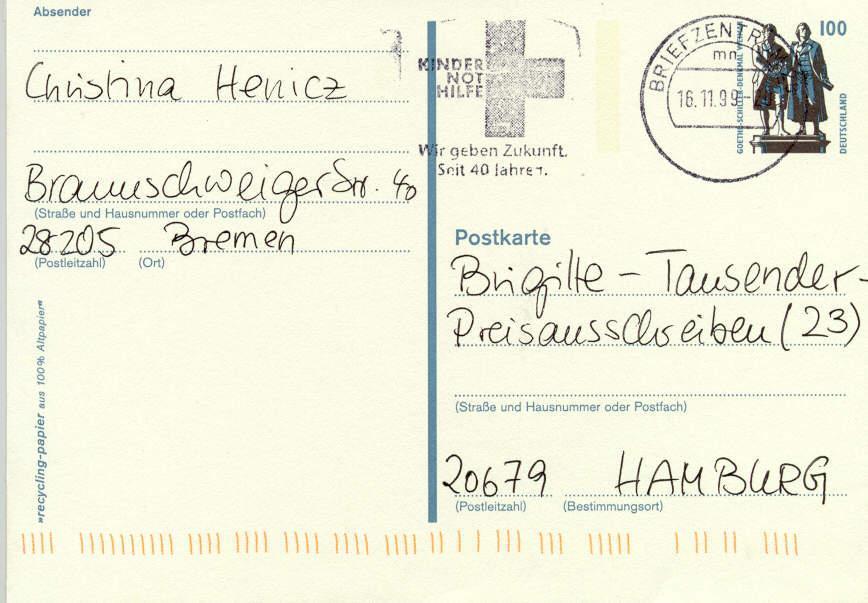 Absender
Christina Henicz
Braunschweiger Str. 40
(Straße und Hausnummer oder Postfach)
28205 Bremen
(Postleitzahl) (Ort)
»recycling-papier aus 100% Altpapier«
KINDER
NOT
HILFE
Wir geben Zukunft.
Seit 40 Jahren.
BRIEFZENTR
mn
16.11.99
100
GOETHE-SCHILLER-DENKMAL WEIMAR
DEUTSCHLAND
Postkarte
Brigitte - Tausender-
Preisausschreiben (23)
(Straße und Hausnummer oder Postfach)
20679 HAMBURG
(Postleitzahl) (Bestimmungsort)